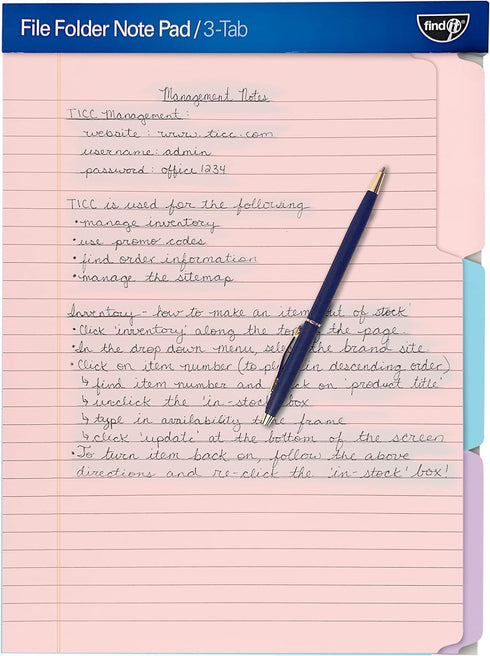 File Folder Note Pad / 3-Tab
find it
Management Notes
TICC Management:
website: www.ticc.com
username: admin
password: office1234
TICC is used for the following
• manage inventory
• use promo codes
• find order information
• manage the sitemap
Inventory - how to make an item out of stock'
• Click 'inventory' along the top the page.
• In the drop down menu, select the brand site
• Click on item number (to in descending order)
↳ find item number and click on 'product title'
↳ unclick the 'in-stock' box
↳ type in availability time frame
↳ click 'update' at the bottom of the screen
• To turn item back on, follow the above
directions and re-click the 'in-stock' box!